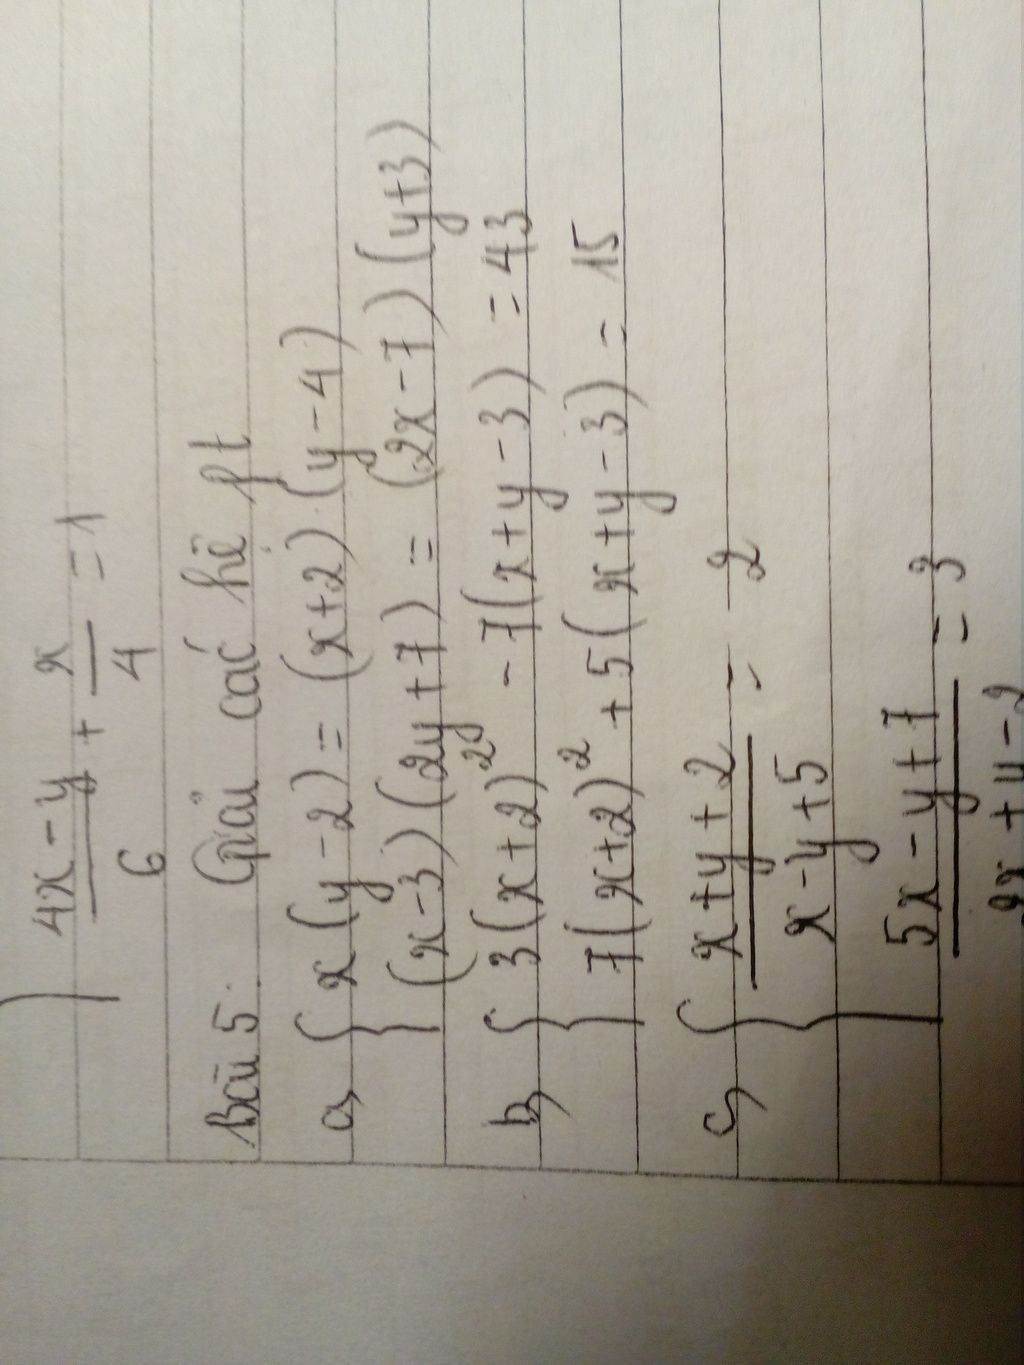 4x - y / 6 + x / 4 = 1
Bài 5: Giải các hệ pt
a, { x(y-2) = (x+2).(y-4)
(x-3)(2y+7) = (2x-7)(y+3)
b, { 3(x+2)² - 7(x+y-3) = 43
7(x+2)² + 5(x+y-3) = 15
c, { x+y+2 / x-y+5 = 2
5x-y+7 / 2x+y-2 = 3